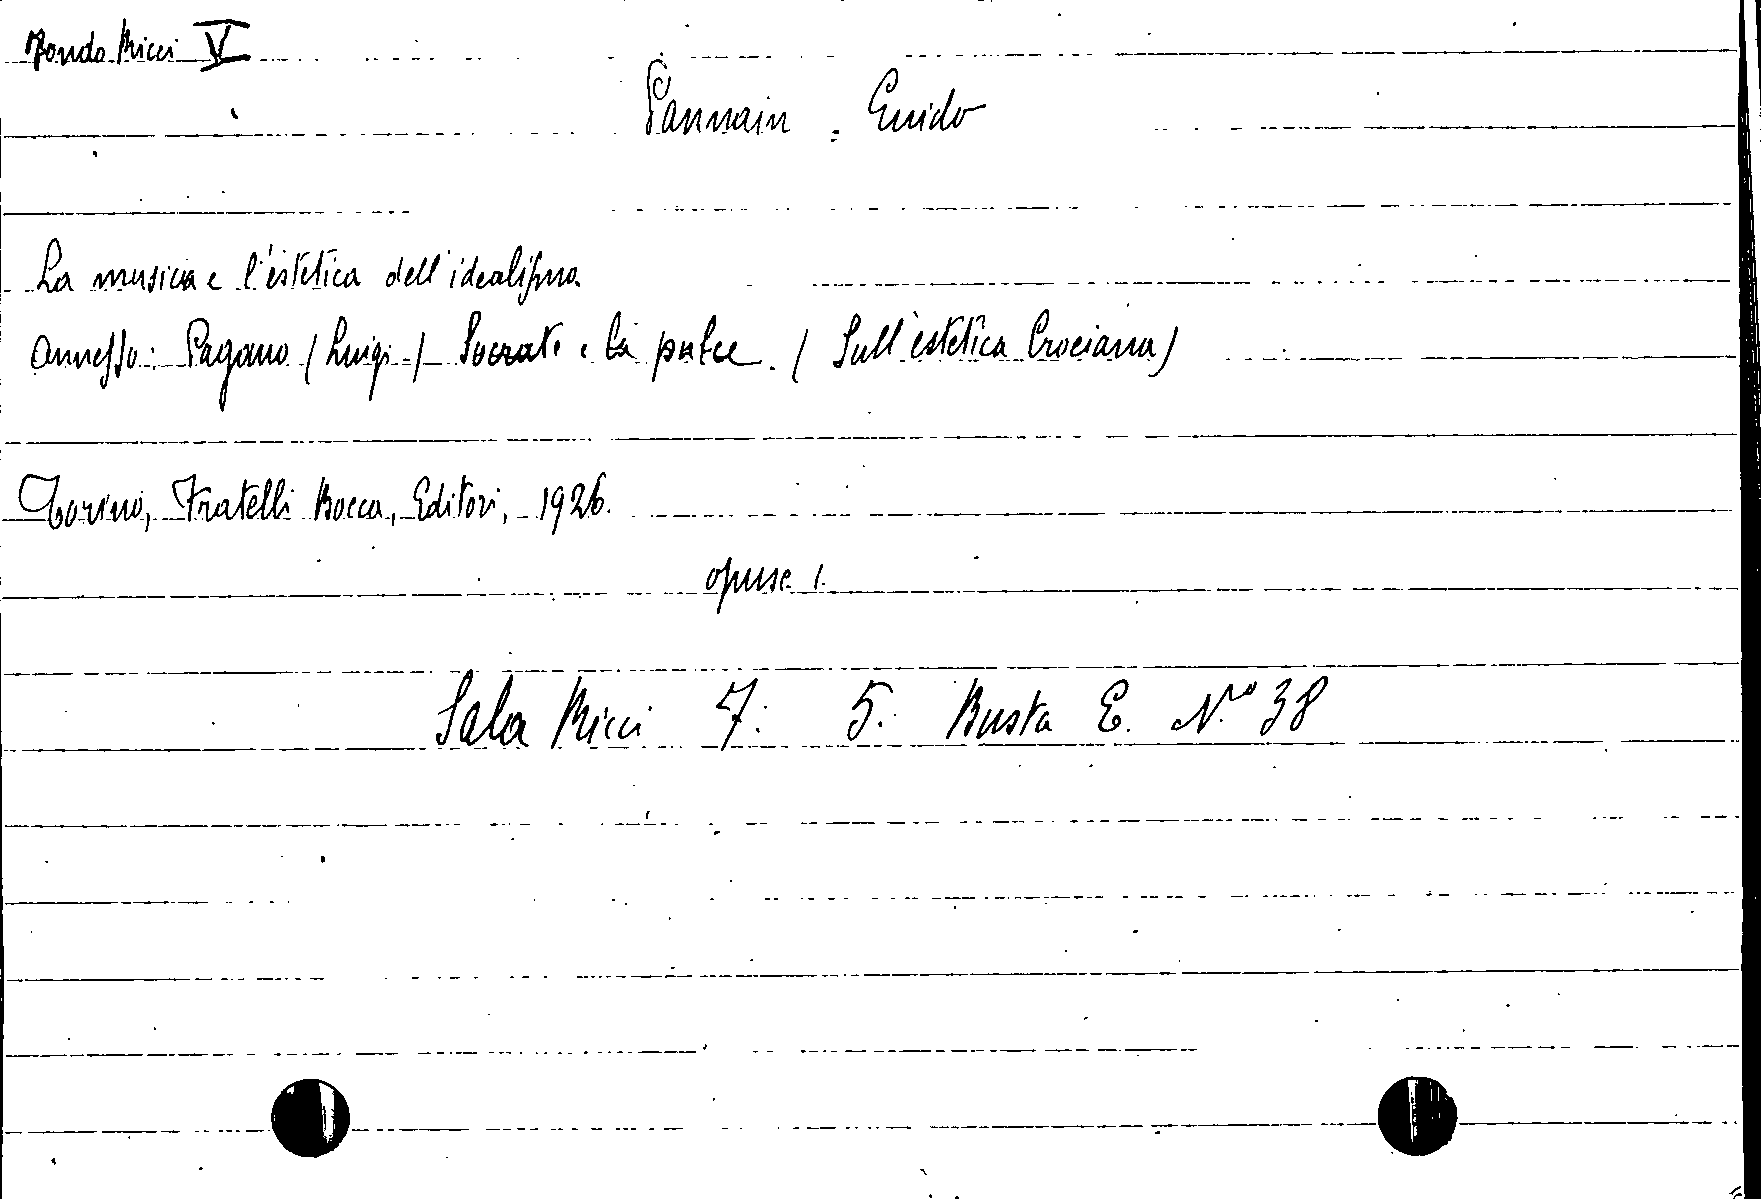 Fondo Ricci V
Pannain : Guido
La musica e l'estetica dell'idealismo.
Annesso: Pagano (Luigi) Socrate e la pulce. (Sull'estetica Crociana)
Torino, Fratelli Bocca, Editori, 1926.
opusc. 1.
Sala Ricci 7. 5. Busta E. N.ro 38